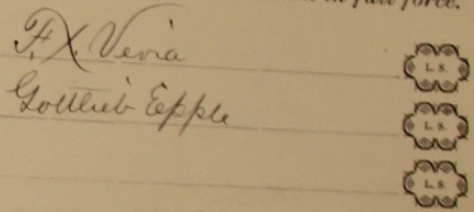 in full force.
F. X. Veria L. S.
Gottlieb Epple L. S.
L. S.